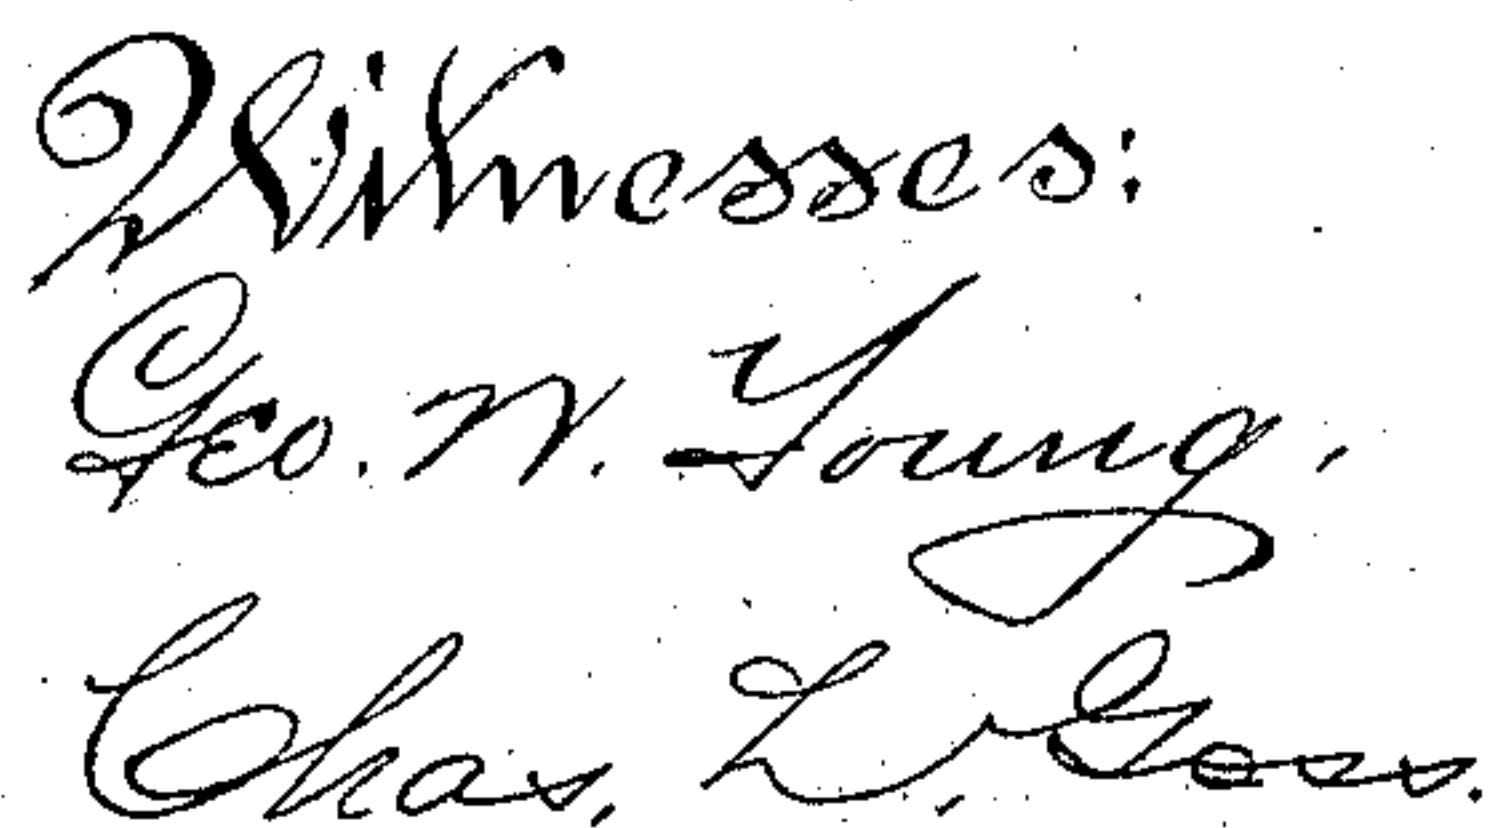 Witnesses:
Geo. W. Young.
Chas. L. Goss.